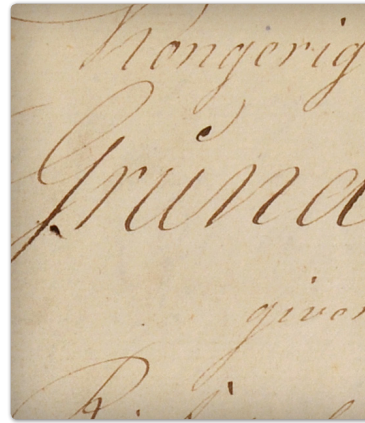 Kongerig
Grund
given